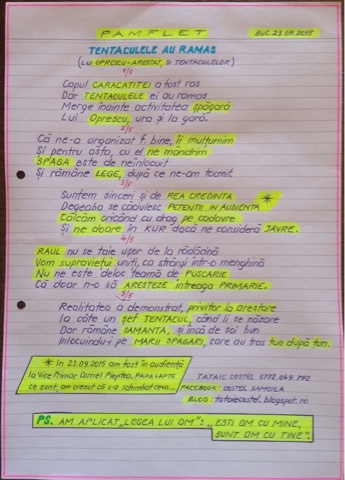 PAMFLET
BUC. 23.09.2015
TENTACULELE AU RAMAS
(LUI OPRESCU-ARESTAT, SI TENTACULELOR)
1/5
Capul CARACATITEI a fost ras
Dar TENTACULELE ei au ramas
Merge înainte activitatea șpăgară
Lui Oprescu, ura și la gară.
2/5
Că ne-a organizat f. bine, îi mulțumim
Și pentru asta, cu el ne mândrim
SPAGA este de neînlocuit
Și rămâne LEGE, după ce ne-am tocmit.
3/5
Suntem sinceri și de REA CREDINTA
Degeaba se zbuciumă PETENTII IN AUDIENTA
Călcăm oricând cu drag pe cadavre
Și ne doare în KUR dacă ne consideră JAVRE.
4/5
RAUL nu se taie ușor de la rădăcină
Vom supraviețui uniți, ca strânși într-o menghină
Nu ne este deloc teamă de PUSCARIE
Că doar n-o să ARESTEZE întreaga PRIMARIE.
5/5
Realitatea a demonstrat, privitor la arestare
La câte un șef TENTACUL, când li se năzare
Dar rămâne SAMANTA, și încă de soi bun
Înlocuindu-i pe MARII SPAGARI, care au tras tun după tun.
* In 23.09.2015 am fost în audiență
la Vice Primar Cornel Pieptea, PAPALAPTE
ce sunt, am crezut că s-a schimbat ceva...
TATAIE COSTEL 0772.049.792
FACEBOOK: COSTEL SAMOILA
BLOG: tataiecostel.blogspot.ro
PS. AM APLICAT „LEGEA LUI OM": „ESTI OM CU MINE,
SUNT OM CU TINE".